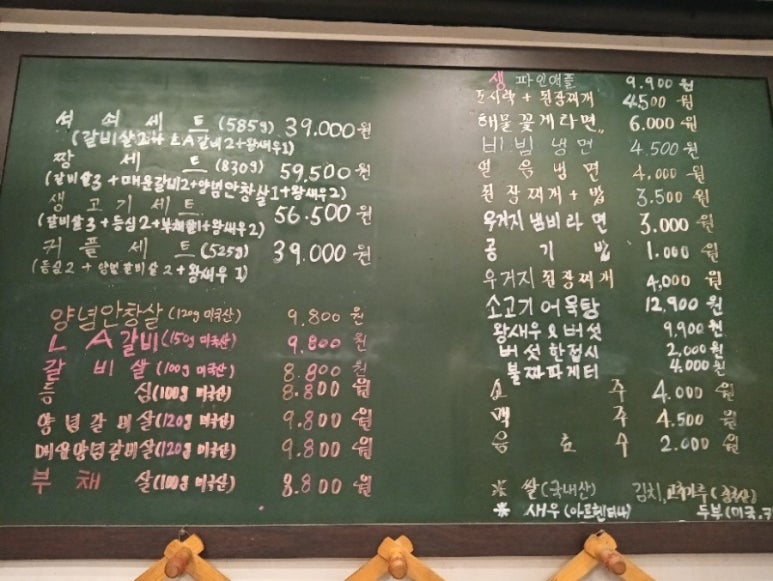 석 쇠 세 트 (585g) 39.000원
(갈비살2+LA갈비2+왕새우1)
짱 세 트 (830g) 59.500원
(갈비살3+매운갈비2+양념안창살1+왕새우2)
생 고 기 세 트 56.500원
(갈비살3+등심2+부채살1+왕새우2)
커 플 세 트 (525g) 39.000원
(등심2+양념갈비살2+왕새우1)
양념안창살(120g 미국산) 9.800원
L A 갈비(150g 미국산) 9.800원
갈 비 살(100g 미국산) 8.800원
등 심(100g 미국산) 8.800원
양념갈비살(120g 미국산) 9.800원
매운양념갈비살(120g 미국산) 9.800원
부 채 살(100g 미국산) 8.800원
생 파인애플 9.900원
도시락+된장찌개 4500원
해물꽃게라면 6.000원
비빔냉면 4.500원
얼음냉면 4.000원
된장찌개+밥 3.500원
우거지냄비라면 3.000원
공 기 밥 1.000원
우거지된장찌개 4,000원
소고기어묵탕 12,900원
왕새우&버섯 9,900원
버섯한접시 2,000원
불짜파게티 4.000원
소 주 4.000원
맥 주 4.500원
음 료 수 2.000원
※ 쌀(국내산) 김치,고추가루(중국산)
※ 새우(아르헨티나) 두부(미국.